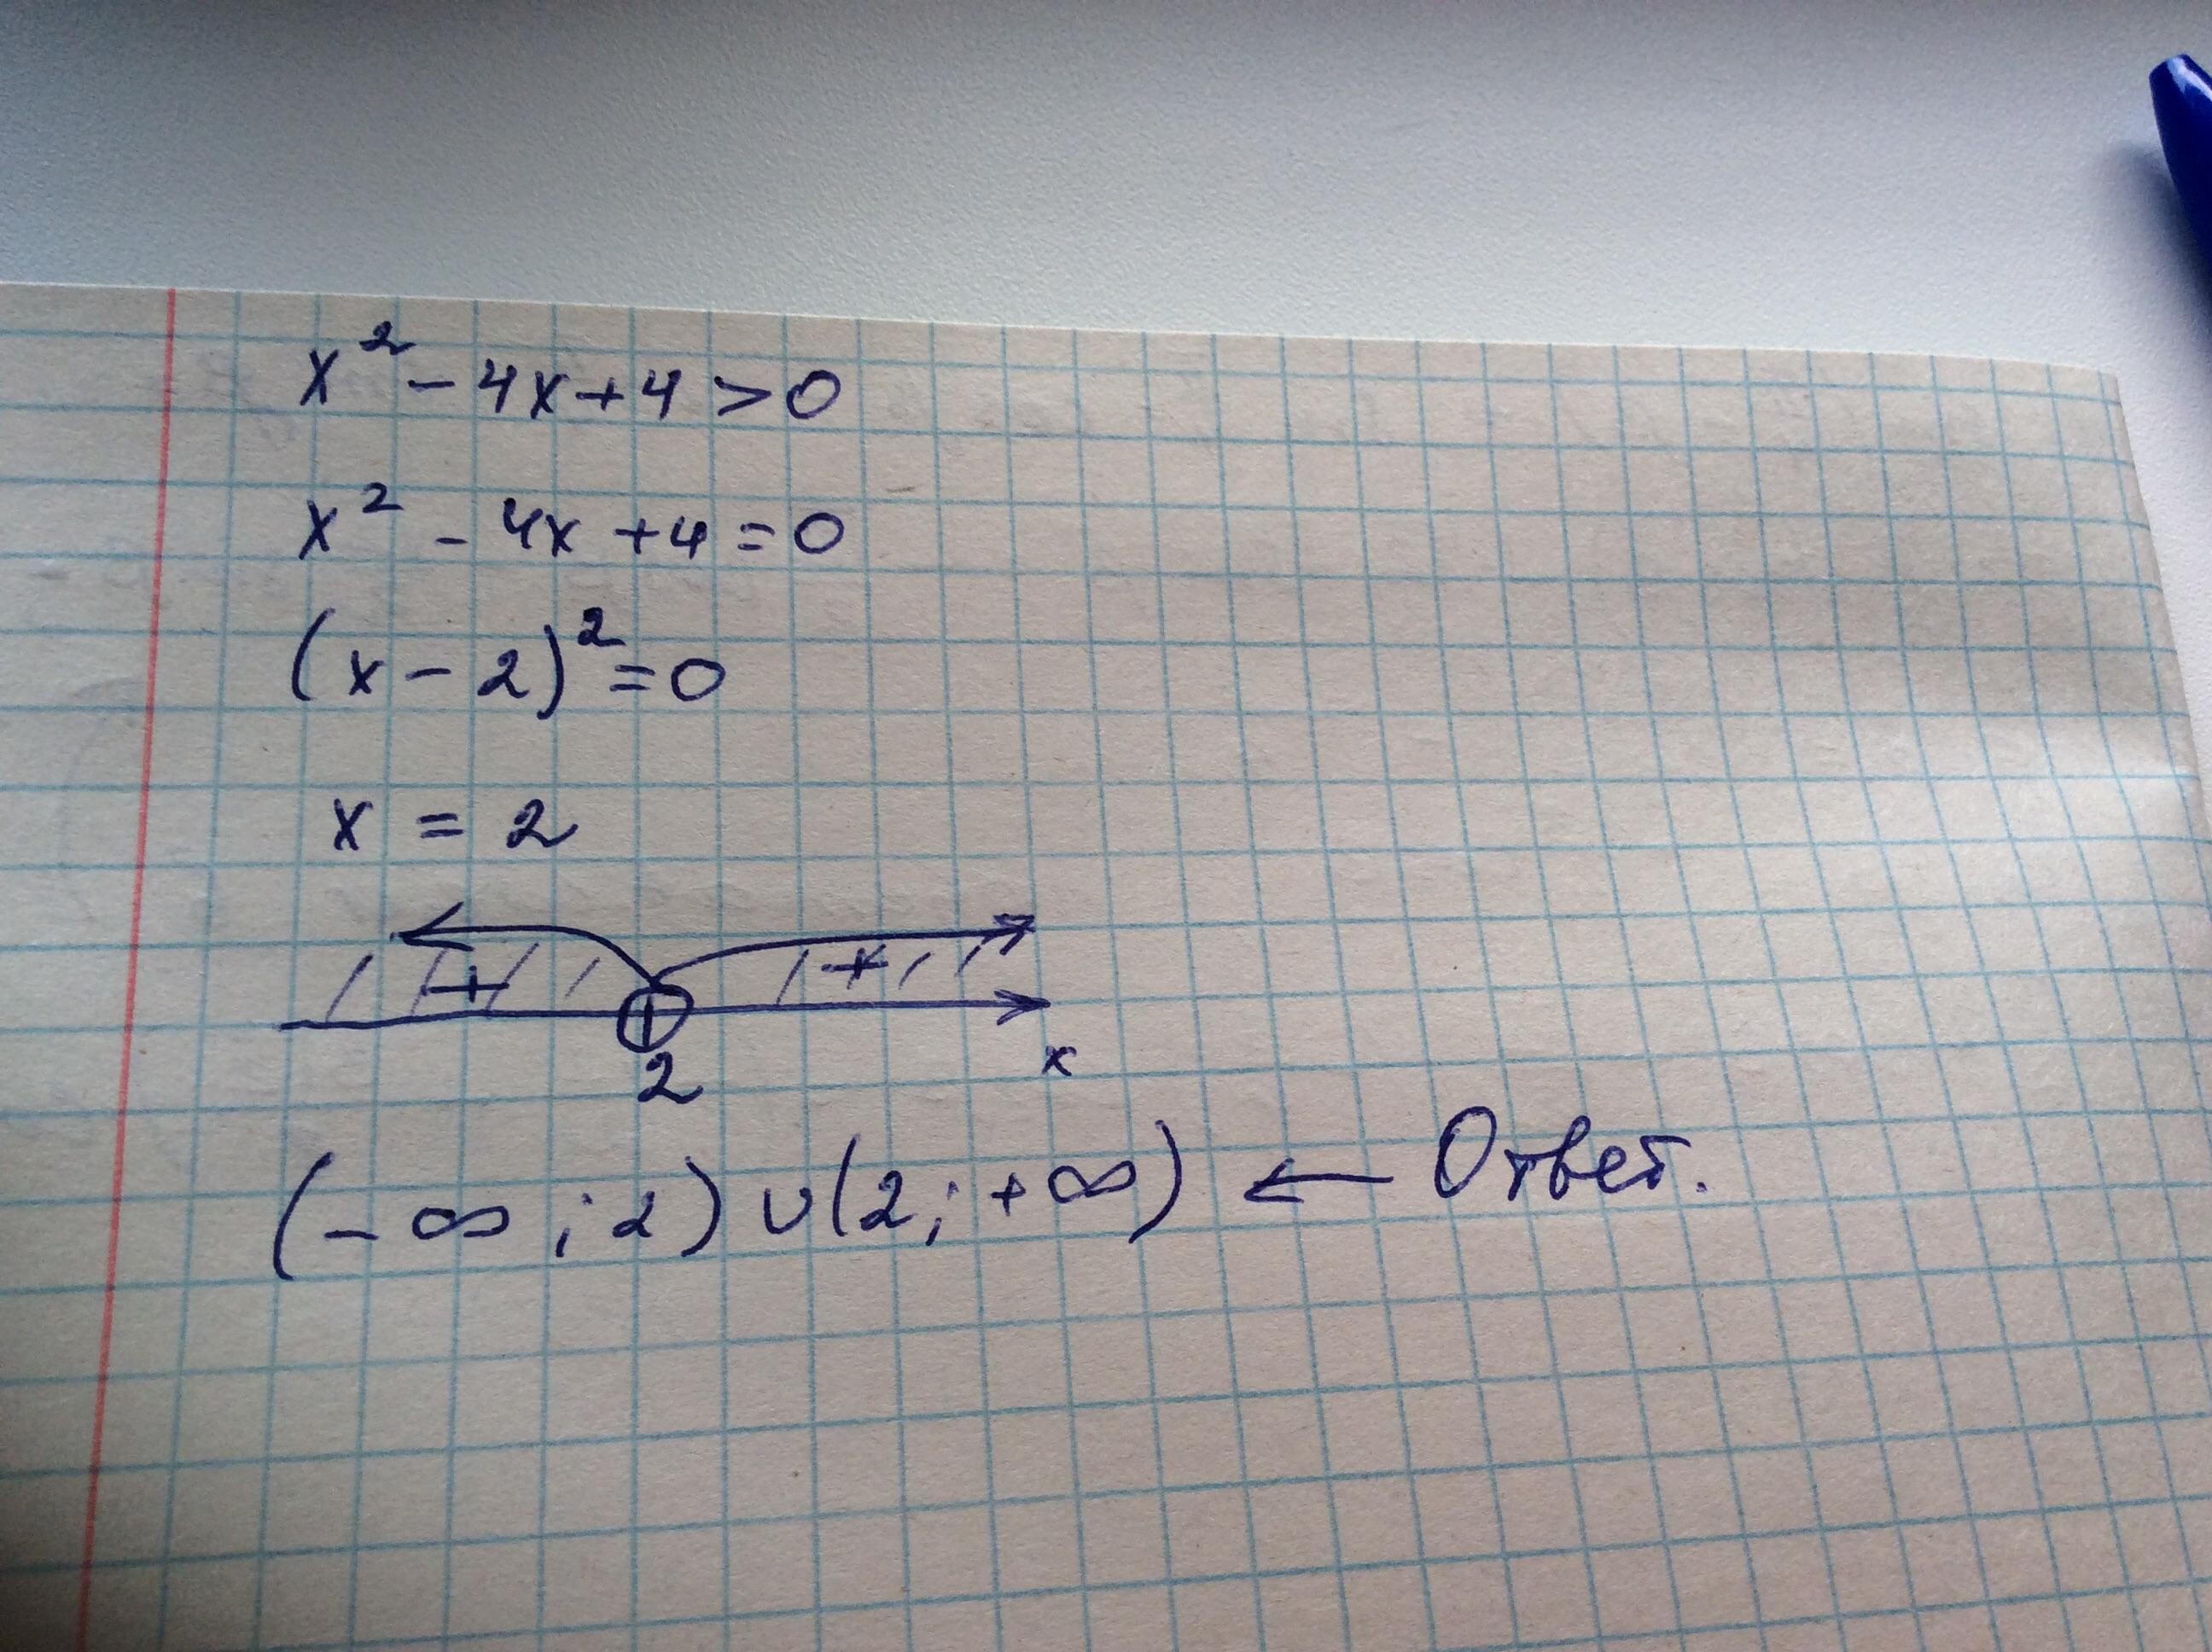 x² - 4x + 4 > 0
x² - 4x + 4 = 0
(x - 2)² = 0
x = 2
+ +
2 x
(-∞; 2) ∪ (2; +∞) ← Ответ.